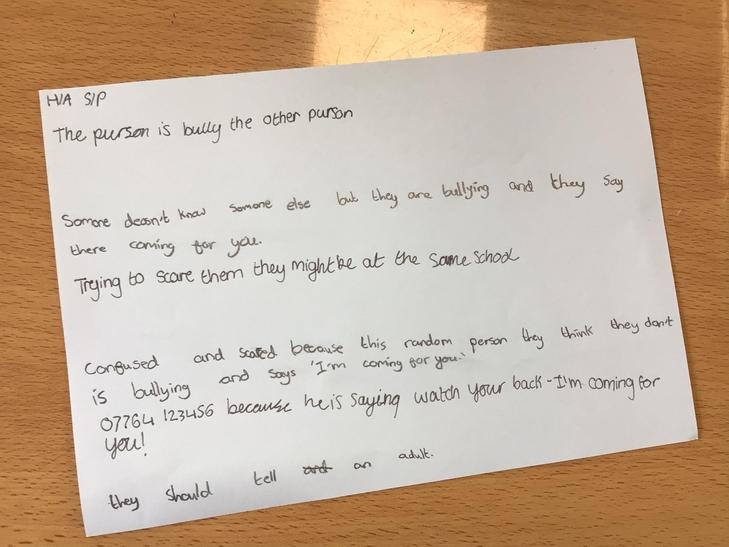 H/A S/P
The purson is bully the other purson
Somone deosn't know somone else but they are bullying and they say
there coming for you.
Trying to scare them they might be at the same school
Confused and scared because this random person they think they don't
is bullying and says 'I'm coming for you.'
07764 123456 because he is saying watch your back - I'm coming for
you!
they should tell and an adult.